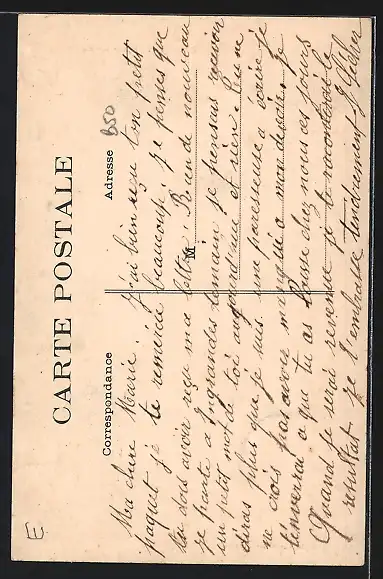 CARTE POSTALE
Correspondance
Adresse
B50
Ma chère Marie. J'ai bien reçu ton petit
paquet je te remercie beaucoup, je penses que
tu dois avoir reçu ma lettre. Rien de nouveau
je parte a Ingrandes demain je pensais recevoir
un petit mot de toi aujourd'hui et rien. Tu me
diras plus que je suis une paresseuse a écrire je
ne dois pas avoir manqué a mon devoir. Je
t'enverrai ce que tu as laissé chez nous ces jours
Quand je serai revenue je te raconterai le
résultat je t'embrasse tendrement
E